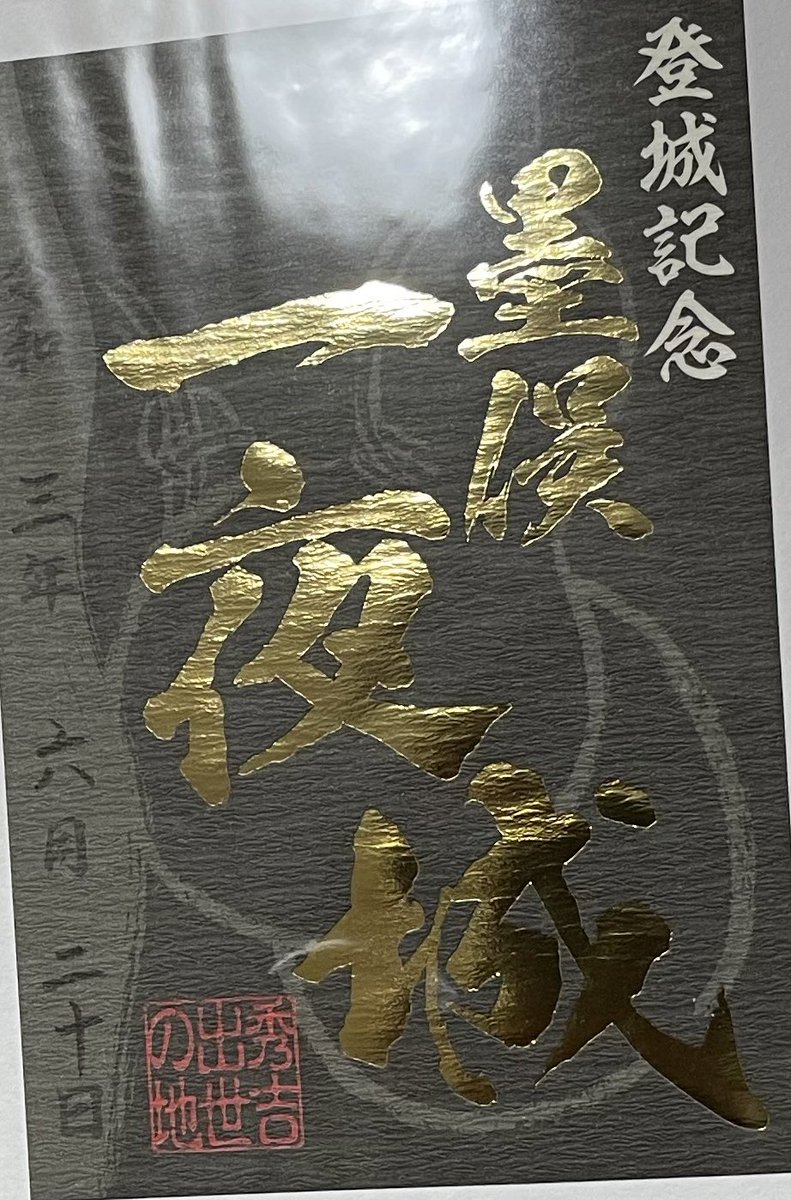 登城記念
墨俣
一夜城
令和三年六月二十日
秀吉
出世
の地